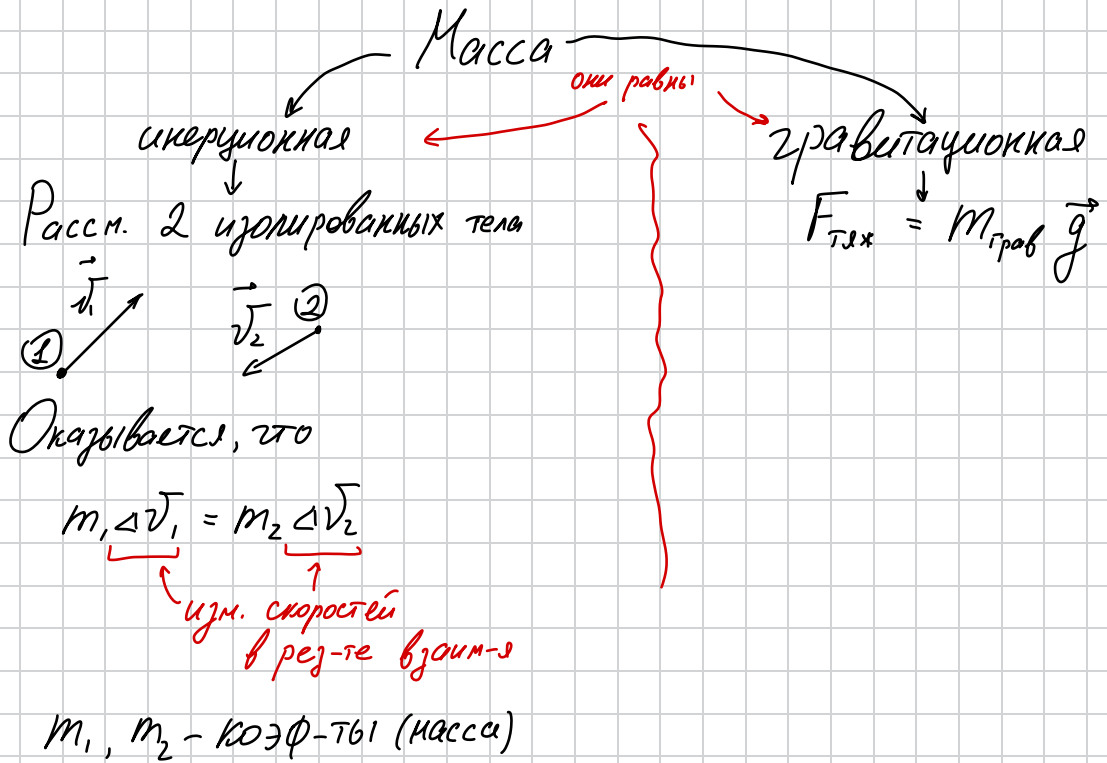 Масса
они равны
инерционная
гравитационная
Рассм. 2 изолированных тела
F тяж = m грав g⃗
v⃗₁
v⃗₂ ②
①
Оказывается, что
m₁ Δv₁ = m₂ Δv₂
изм. скоростей
в рез-те взаим-я
m₁, m₂ – коэф-ты (масса)